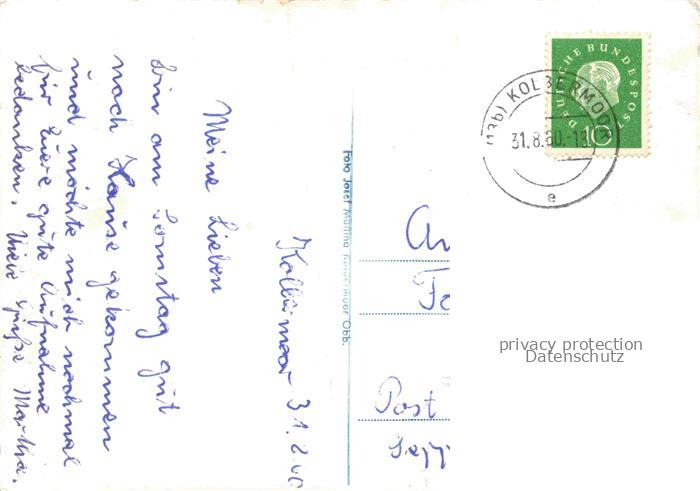 Kolbermoor 31.8.60
Meine Lieben
Bin am Sonntag gut
noch Hause gekommen
und möchte mich nochmal
für Euere gute Aufnahme
bedanken. Viele Grüße Martha.
Foto Josef Kolbermoor Obb.
DEUTSCHE BUNDESPOST
10
(13b) KOLBERMOOR
31.8.60.-18
e
An
Fa
Post
privacy protection
Datenschutz